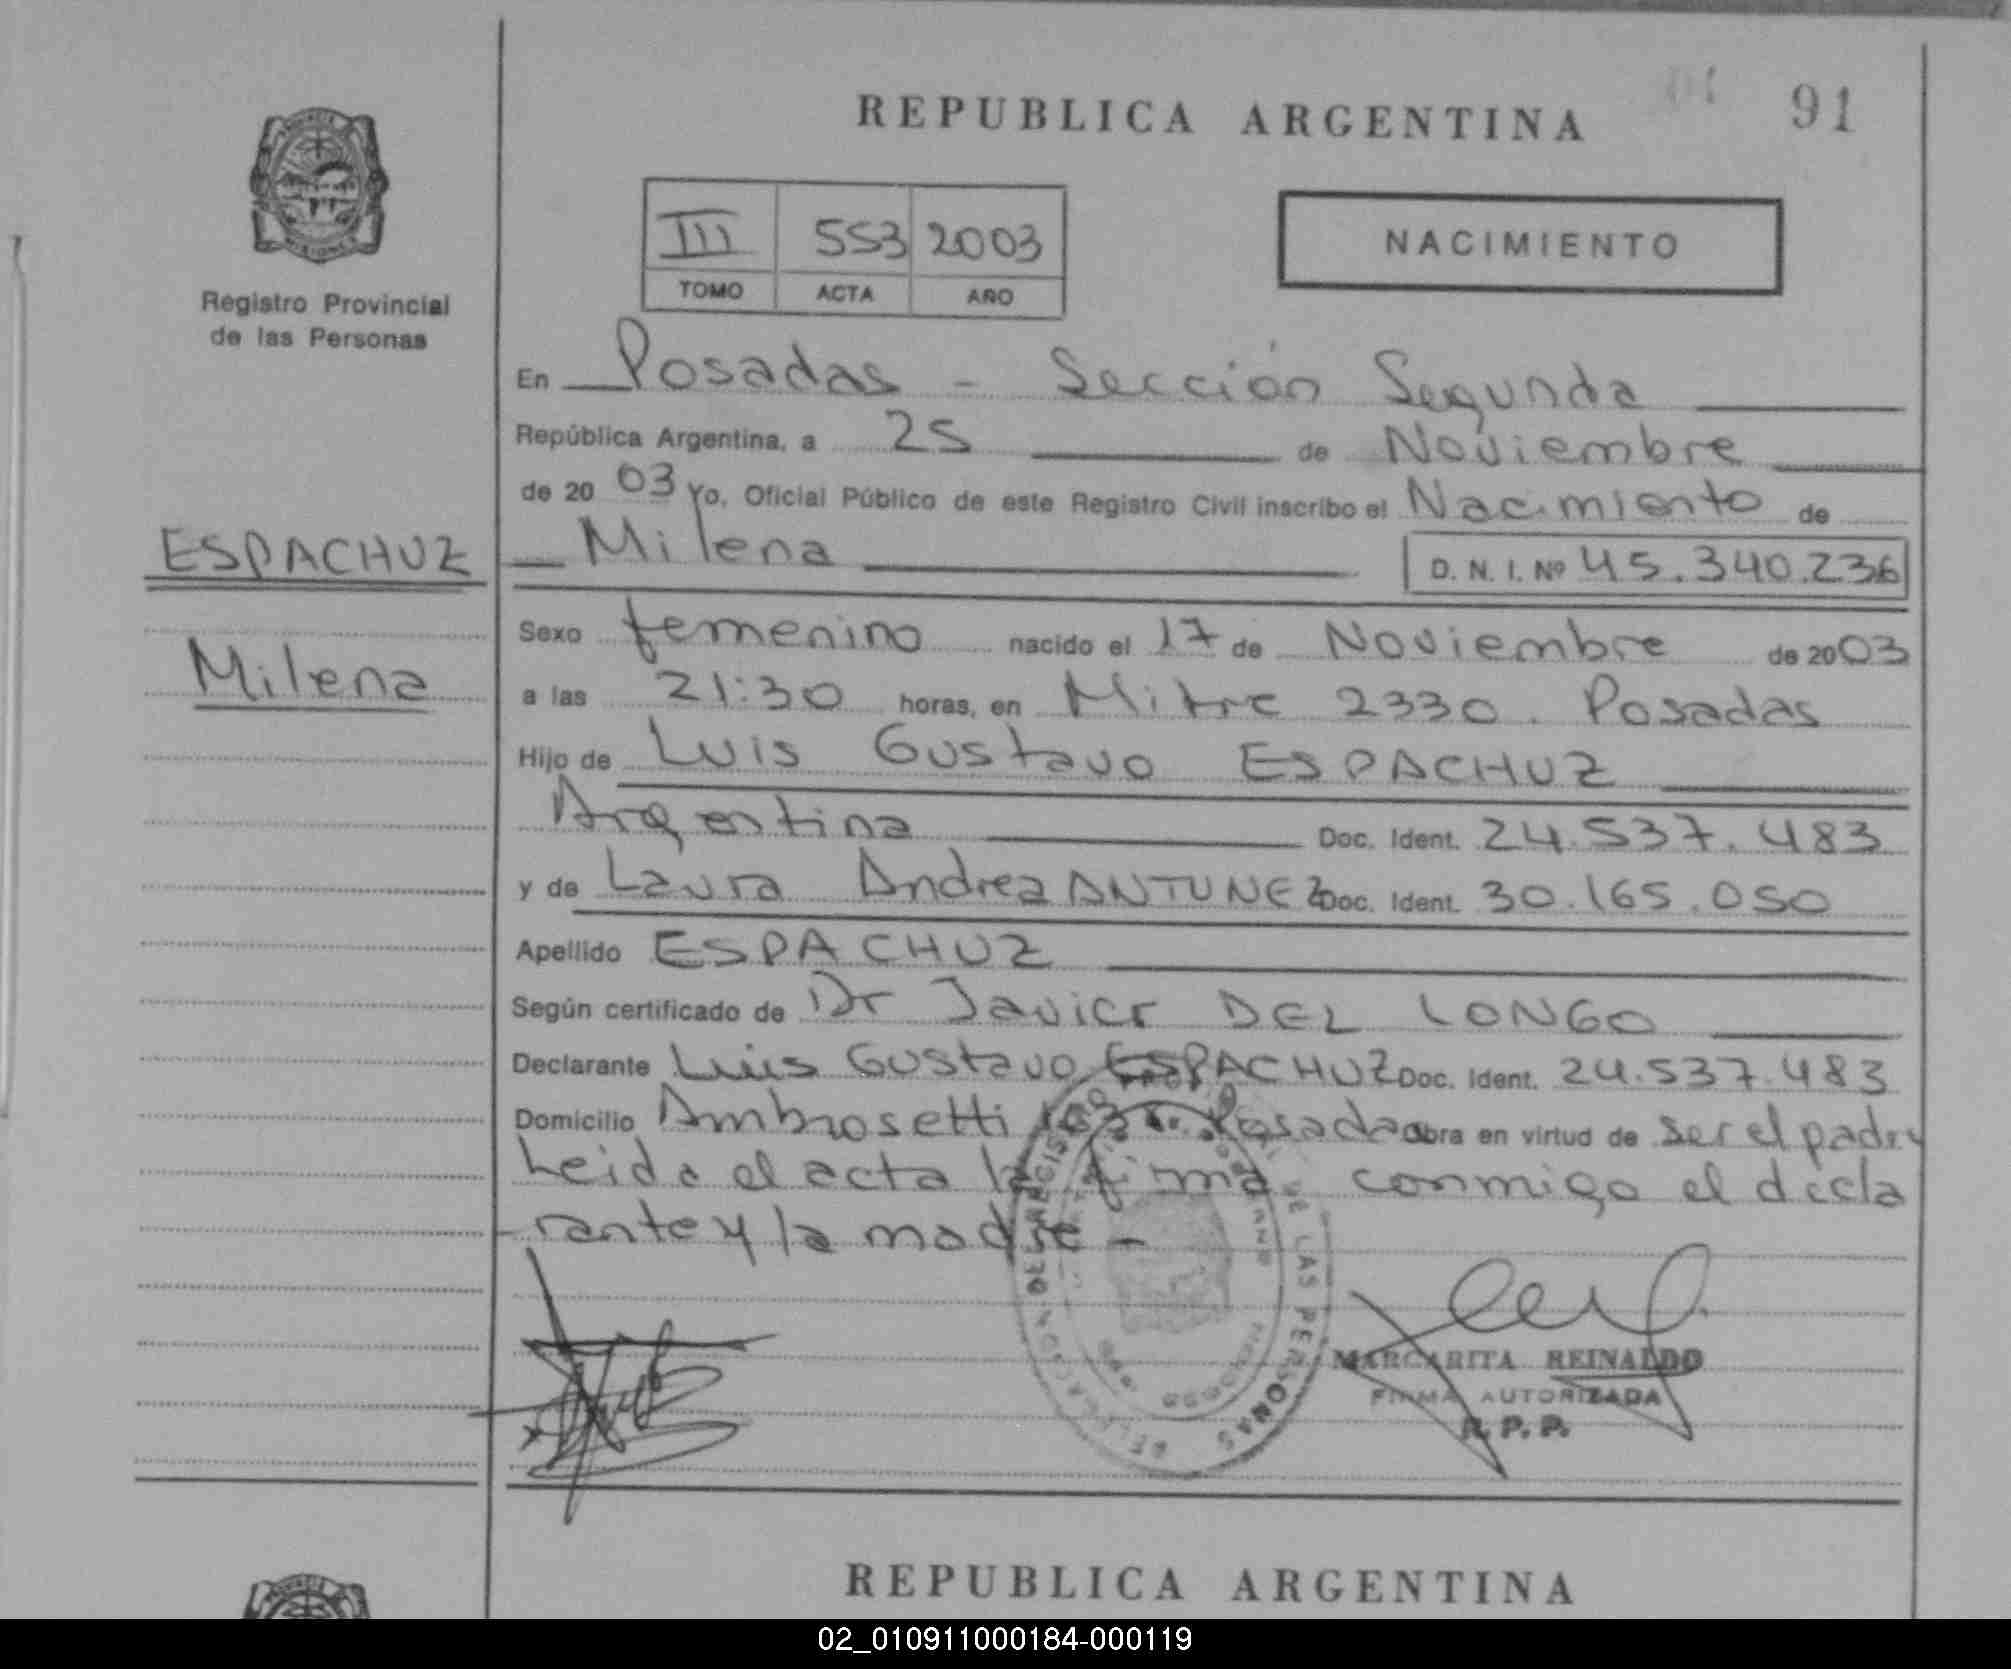 REPUBLICA ARGENTINA 91
III 553 2003
TOMO ACTA AÑO
NACIMIENTO
Registro Provincial
de las Personas
En Posadas - Sección Segunda
República Argentina, a 25 de Noviembre
de 20 03 Yo, Oficial Público de este Registro Civil inscribo el Nacimiento de
ESPACHUZ
Milena
Milena D. N. I. Nº 45.340.236
Sexo femenino nacido el 17 de Noviembre de 2003
a las 21:30 horas, en Mitre 2330. Posadas
Hijo de Luis Gustavo ESPACHUZ
Argentina Doc. Ident. 24.537.483
y de Laura Andrea ANTUNEZ Doc. Ident. 30.165.050
Apellido ESPACHUZ
Según certificado de Dr Javier DEL LONGO
Declarante Luis Gustavo ESPACHUZ Doc. Ident. 24.537.483
Domicilio Ambrosetti Posadas obra en virtud de ser el padre
Leida el acta la firma conmigo el decla
rante y la madre -
DE LAS PERSONAS
MARGARITA REINALDO
FIRMA AUTORIZADA
R. P. P.
REPUBLICA ARGENTINA
02_010911000184-000119